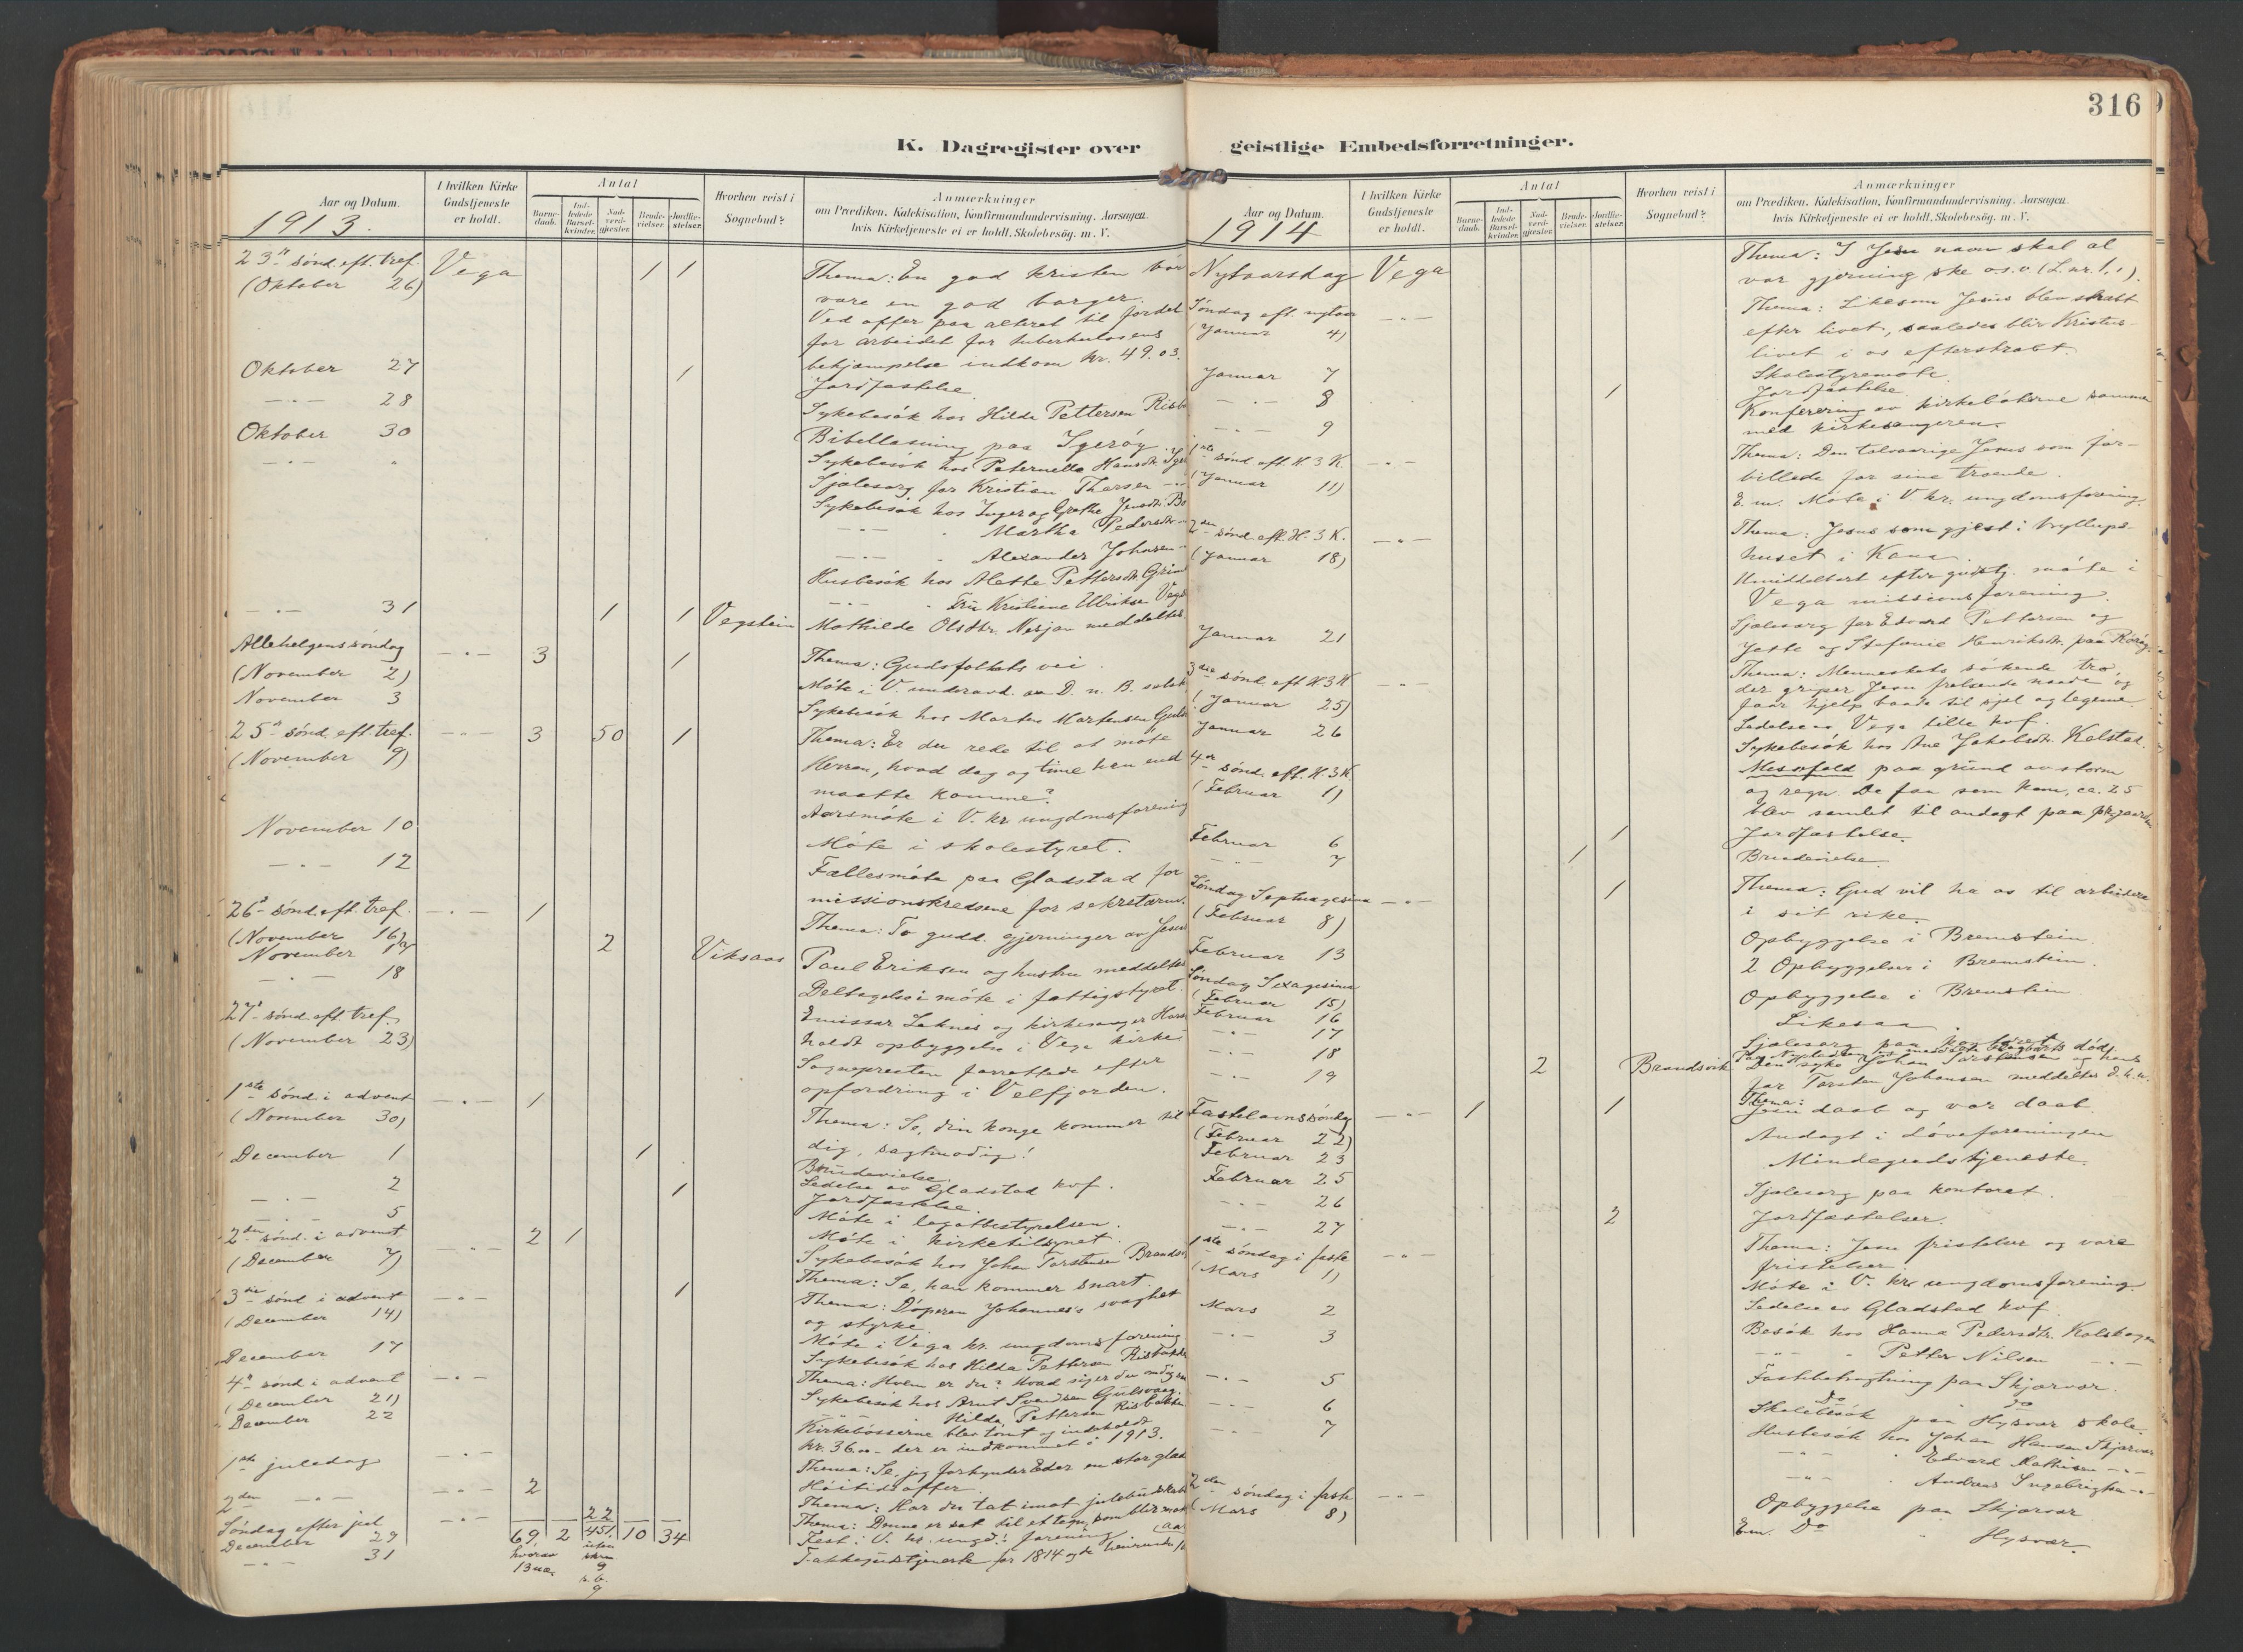 316
K. Dagregister over geistlige Embedsforretninger.
Aar og Datum.
I hvilken Kirke Gudstjeneste er holdt.
Antal
Barne-daab.
Ind-ledede Barsel-kvinder.
Nad-verd-gjester.
Brude-vielser.
Jordfæ-stelser.
Hvorhen reist i Sognebud?
Anmærkninger
om Prædiken, Katekisation, Konfirmandundervisning, Aarsagen,
hvis Kirketjeneste ei er holdt, Skolebesøg, m. V.
1913.
23de sønd. eft. tref. Vega 1 1 Thema: En god kristen bør
(Oktober 26) være en god borger.
Ved offer paa alteret til fordel
for arbeidet for tuberkulosens
bekjæmpelse indkom kr. 49.03.
Oktober 27 1 Jordfæstelse
-"- 28 Sykebesøk hos Hilda Pettersen
Oktober 30 Bibellæsning paa Ygerøy
Sykebesøk hos Peternelle Hansdtr.
Sjælesorg for Kristian Thorsen
Sykebesøk hos Inger og Grethe Jensdtr.
-"- Martha Pedersdtr.
-"- Alexander Johnsen
Husbesøk hos Alette Pettersdtr.
-"- Fru Kristiane Ulrikse
-"- 31 1 1 Vegstein Mathilde Olsdtr. Nesjan meddeltes
Allehelgenssøndag -"- 3 1 Thema: Gudsfolkets vei.
(November 2)
November 3 Sykebesøk hos Morten Mortensen
25de sønd. eft. tref. -"- 3 50 1 Thema: Er du rede til at møte
(November 9) Herren, hvad dag og time han end
maatte komme?
Aarsmøte i V. kr. ungdomsforening
November 10 Møte i skolestyret.
-"- 12 Fællesmøte paa Gladstad for
missionskredsene for sekretæren.
26de sønd. eft. tref. -"- 1 Thema: To gudd. gjerninger av Jesus
(November 16)
November 17 2 Viksaas Paul Eriksen og hustru meddeltes
-"- 18 Deltagelse i møte i fattigstyret.
27de sønd. eft. tref. Emissær og kirkesanger
(November 23) holdt opbyggelse i Vega kirke
Sognepresten forrettede efter
opfordring i Velfjorden.
1ste sønd. i advent -"- 1 Thema: Se, din konge kommer til
(November 30) dig, sagtmodig!
December 1 1 Brudevielse.
Ledelse av Gladstad kvf.
2 1 Jordfæstelse.
-"- 5 Møte i legatbestyrelsen.
Møte i kirketilsynet.
Sykebesøk hos Johan Torstensen
2den sønd. i advent -"- 2 1 Thema: Se, han kommer snart.
(December 7)
3die sønd. i advent -"- 1 Thema: Døperen Johannes's svaghet
(December 14) og styrke
Møte i Vega kr. ungdomsforening
December 17 Sykebesøk hos Hilda Pettersen
4de sønd. i advent -"- Thema: Hvem er du? Hvad siger du om dig
(December 21)
December 22 Sykebesøk hos Arnt Svendsen Gulsvaag.
-"- Hilda Pettersen Risbakken
Kirkebøsserne blev tømt og indeholdt
kr. 36 der er indkommet i 1913.
1ste juledag -"- Thema: Se, jeg forkynder Eder en stor glæde
Høitidsoffer
2den -"- 2 Thema: Har du tat imot julebudskabet
Søndag efter jul -"- 22 Thema: Denne er sat til et tegn, som blir
December 29 69 2 451 10 34 Fest i V. kr. ungd. forening
-"- 31 hvorav 13 uten 9 Takkegudstjeneste for 1814 og de
1914
Nytaarsdag Vega Thema: I Jesu navn skal al
vor gjerning ske o.s.v (L. nr. 1,1).
Søndag eft. nytaar -"- Thema: Likesom Jesus blev stræbt
(Januar 4) efter livet, saaledes blir Kristus-
livet i os efterstræbt.
Januar 7 Skolestyremøte.
-"- 8 1 Jordfæstelse.
-"- 9 Konferering av kirkebøkerne sammen
med kirkesangeren.
1ste sønd. eft. H. 3 K. -"- Thema: Den tolvaarige Jesus som for-
(Januar 11) billede for sine troende.
E. m. Møte i V. kr. ungdomsforening.
2den sønd. eft. H. 3 K. -"- Thema: Jesus som gjest i bryllups-
(Januar 18) huset i Kana.
Umiddelbart efter gudstj. møte i
Vega missionsforening.
Januar 21 Sjælesorg for Edvard Pettersen og
Jette og Stefanie Henriksdtr. paa Rørøy.
3die sønd. eft. H 3 K -"- Thema: Menneskets søkende tro,
(Januar 25) der griper Jesu frelsende naade og
faar hjelp baade til sjel og legeme
Januar 26 Ledelse av Vega lille kvf.
Sykebesøk hos Ane Jakobsdtr. Kelstad.
4de sønd. eft. H. 3 K. Messefald paa grund av storm
(Februar 1) og regn. De faa som kom, ca. 25
blev samlet til andagt paa
Februar 6 1 Jordfæstelse.
-"- 7 1 Brudevielse.
Søndag Septuagesima -"- 1 Thema: Gud vil ha os til arbeidere
(Februar 8) i sit rike.
Februar 13 Opbyggelse i Bremstein.
Søndag Sexagesima 2 Opbyggelser i Bremstein.
(Februar 15)
Februar 16 Opbyggelse i Bremstein.
-"- 17 Likesaa
-"- 18 Sjælesorg paa kontoret.
-"- 19 2 Brandsvik Den syke Johan Torstensen og hans
far Torsten Johansen meddeltes d. h. n.
Fastelavnssøndag -"- 1 1 Thema: Jesu daab og vor daab.
(Februar 22)
Februar 23 Andagt i Løveforeningen
Februar 25 Mindegudstjeneste.
-"- 26 Sjælesorg paa kontoret.
-"- 27 2 Jordfæstelser.
1ste søndag i faste -"- Thema: Jesu fristelser og vore
(Mars 1) fristelser.
Møte i V. kr. ungdomsforening.
Mars 2 Ledelse av Gladstad kvf.
-"- 3 Besøk hos Hanna Pedersdtr.
-"- Petter Nilsen -"-
-"- 5 Fastebetragtning paa Skjærvær.
-"- 6 Do Do
-"- 7 Skolebesøk paa Hysvær skole.
Husbesøk hos Johan Hansen Skjærvær
-"- Edvard Mathisen -"-
-"- Andreas Ingebrigtsen -"-
2den søndag i faste -"- Opbyggelse paa Skjærvær
(Mars 8) E.m. Do " Hysvær.